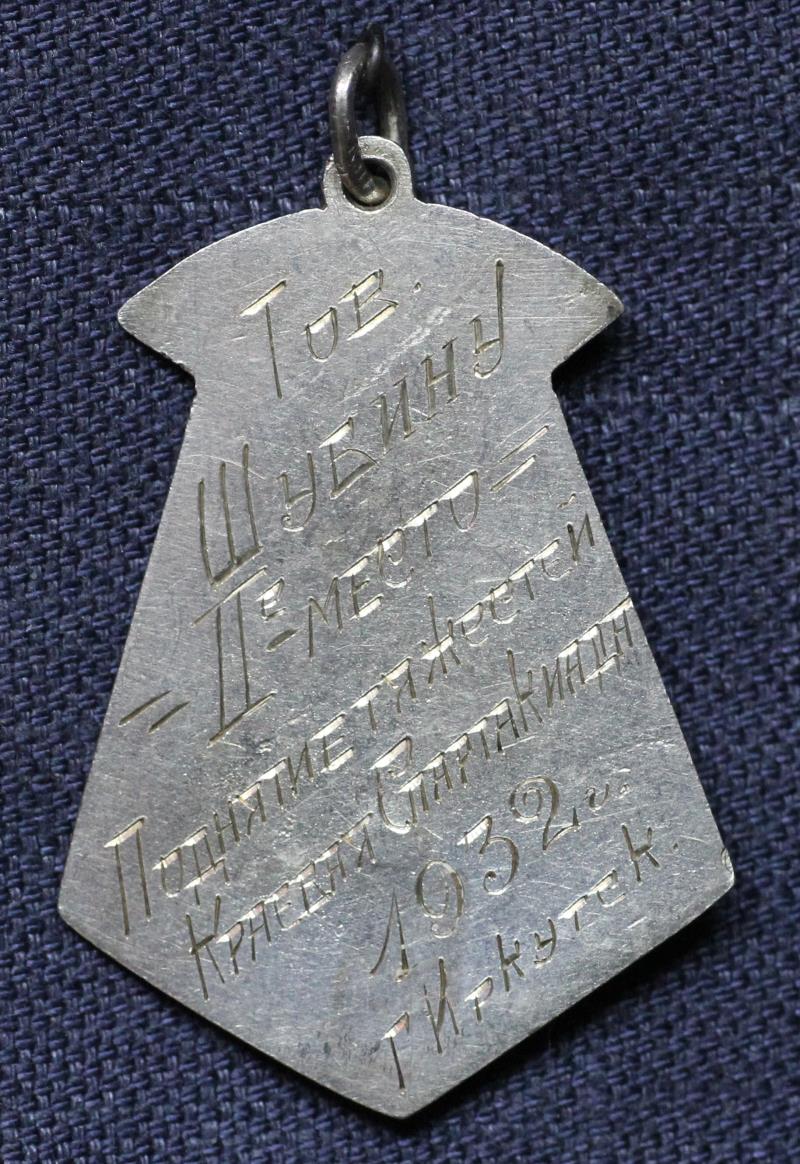 Тов.
Шубину
= IIе - место =
Поднятие тяжестей
Краевая Спартакиада
1932 г.
г Иркутск.